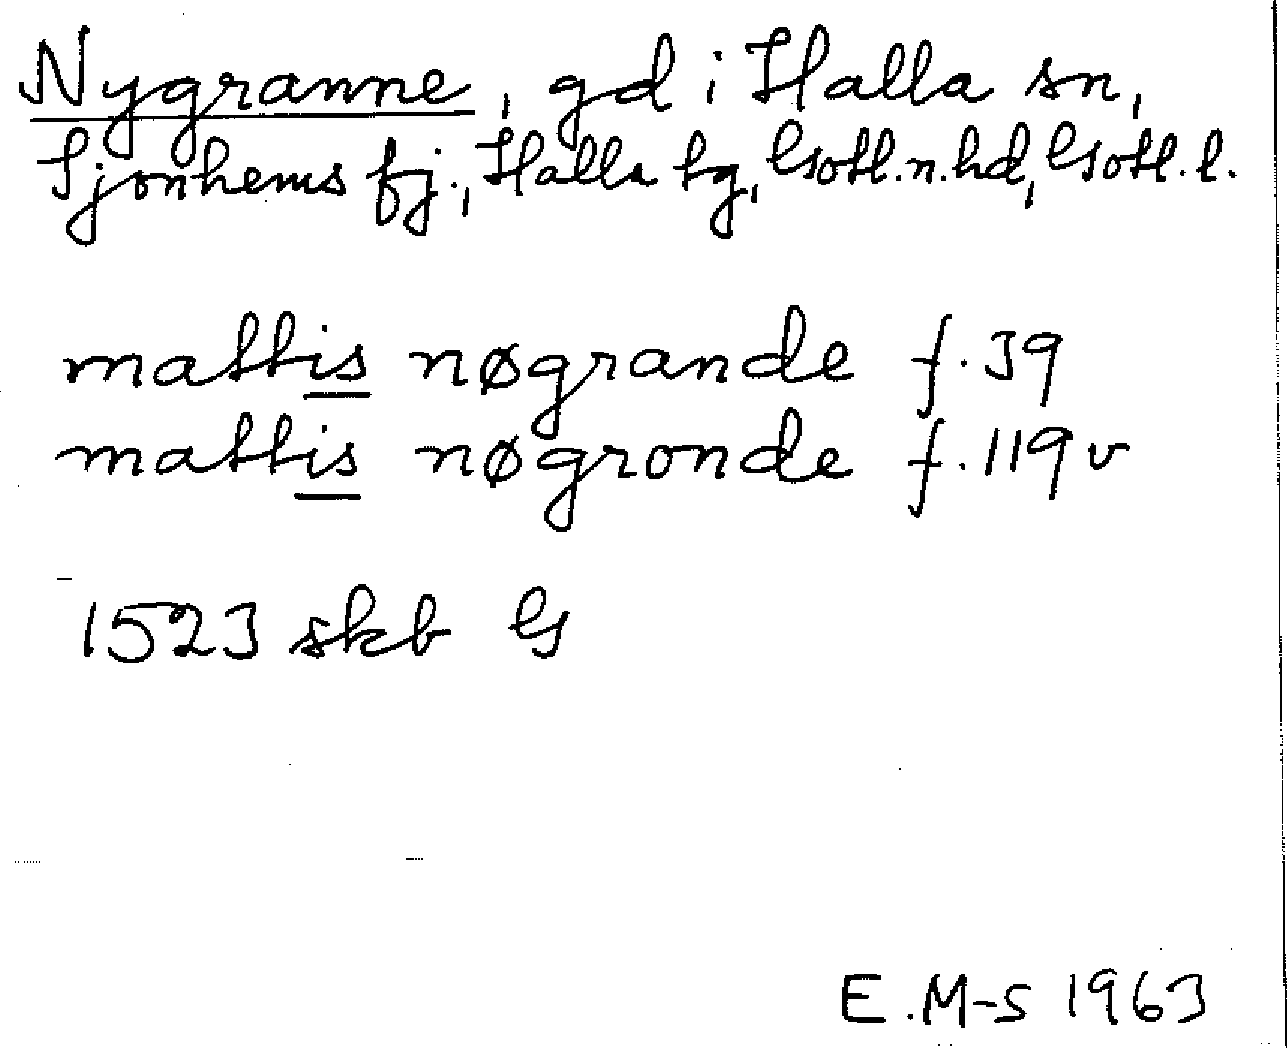 Nygranne, gd i Halla sn,
Sjonhems fj., Halla tg, Gotl.n.hd, Gotl.l.
mattis nøgrande f.39
mattis nøgronde f.119v
1523 skb G
E.M-S 1963